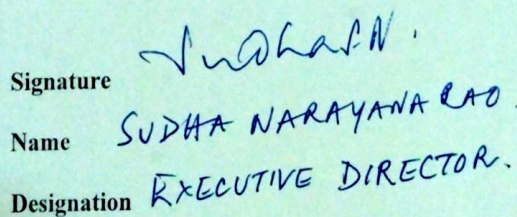 Signature Sudhas.N.
Name SUDHA NARAYANA RAO.
Designation EXECUTIVE DIRECTOR.